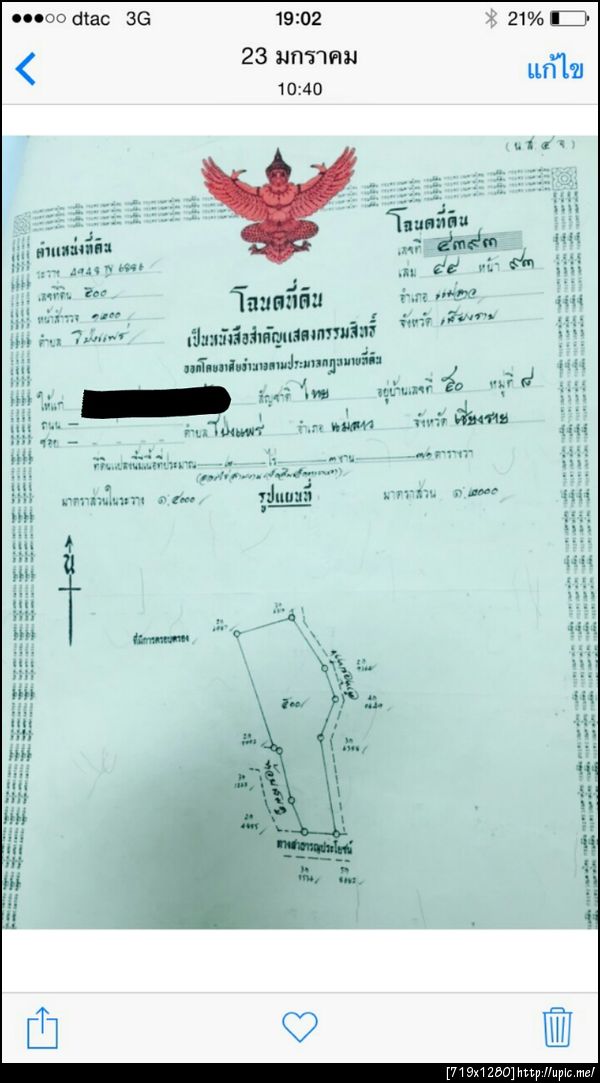 dtac 3G 19:02 21%
23 มกราคม
10:40
แก้ไข
(น.ส. ๔ จ.)
ตำแหน่งที่ดิน
ระวาง 4948 IV 6886
เลขที่ดิน ๕๐๐
หน้าสำรวจ
ตำบล โป่งแพร่
โฉนดที่ดิน
เลขที่ ๔๓๙๓
เล่ม ๔๔ หน้า ๙๓
อำเภอ แม่ลาว
จังหวัด เชียงราย
โฉนดที่ดิน
เป็นหนังสือสำคัญแสดงกรรมสิทธิ์
ออกโดยอาศัยอำนาจตามประมวลกฎหมายที่ดิน
ให้แก่ สัญชาติ ไทย อยู่บ้านเลขที่ ๕๐ หมู่ที่ ๘
ถนน – ตำบล โป่งแพร่ อำเภอ แม่ลาว จังหวัด เชียงราย
ซอย –
ที่ดินแปลงนี้มีเนื้อที่ประมาณ ๒ ไร่ ๓ งาน ๗๖ ตารางวา
มาตราส่วนในระวาง ๑:๔๐๐๐ รูปแผนที่ มาตราส่วน ๑:๒๐๐๐
น
ที่มีการครอบครอง
๕๐๐
ทางสาธารณประโยชน์
[719x1280]http://upic.me/